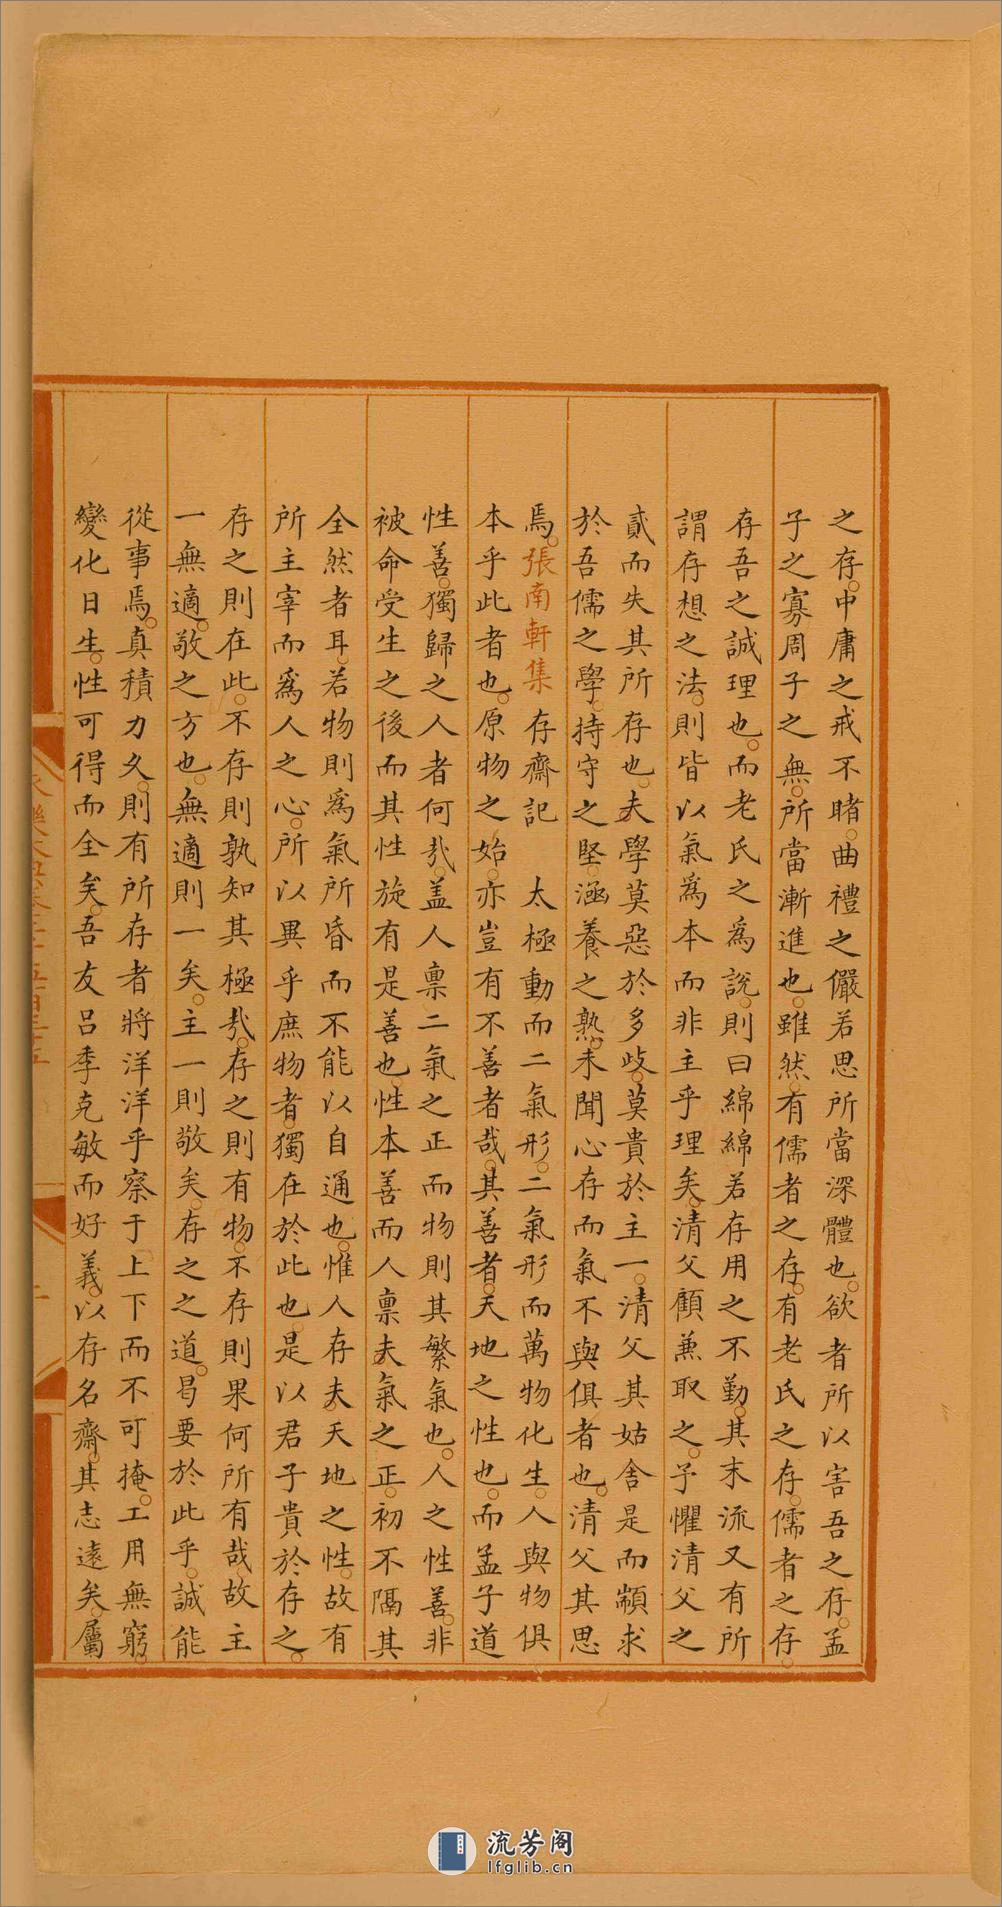 之存中庸之戒不睹曲禮之儼若思所當深體也欲者所以害吾之存孟
子之寡周子之無所當漸進也雖然有儒者之存有老氏之存儒者之存
存吾之誠理也而老氏之為說則曰綿綿若存用之不勤其末流又有所
謂存想之法則皆以氣爲本而非主乎理矣清父顧兼取之予懼清父之
貳而失其所存也夫學莫惡於多歧莫貴於主一清父其姑舍是而顓求
於吾儒之學持守之堅涵養之熟未聞心存而氣不與俱者也清父其思
焉張南軒集 存齋記 太極動而二氣形二氣形而萬物化生人與物俱
本乎此者也原物之始亦豈有不善者哉其善者天地之性也而孟子道
性善獨歸之人者何哉盖人禀二氣之正而物則其繁氣也人之性善非
被命受生之後而其性旋有是善也性本善而人禀夫氣之正初不隔其
全然者耳若物則爲氣所昏而不能以自通也惟人存夫天地之性故有
所主宰而爲人之心所以異乎庶物者獨在於此也是以君子貴於存之
存之則在此不存則孰知其極哉存之則有物不存則果何所有哉故主
一無適敬之方也無適則一矣主一則敬矣存之之道曷要於此乎誠能
從事焉真積力久則有所存者將洋洋乎察于上下而不可掩工用無窮
變化日生性可得而全矣吾友呂季克敏而好義以存名齋其志遠矣屬
流芳阁
lfglib.cn